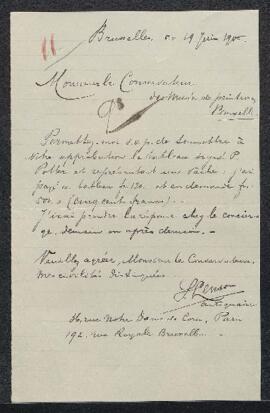 11
Bruxelles, 19 Juin
Monsieur le Conservateur
des Musées de peinture
Permettez-moi s.v.p. de soumettre à
votre approbation le tableau signé P.
Potter et représentant une vache; j'ai
payé ce tableau fr. et en demande fr.
500.- (cinq cent francs).-
J'irai prendre la réponse chez le concier-
ge, demain ou après demain.-
Veuillez agréer, Monsieur le Conservateur,
mes civilités
antiquaire
36, rue Notre Dame de Paris
192, rue Royale Bruxelles